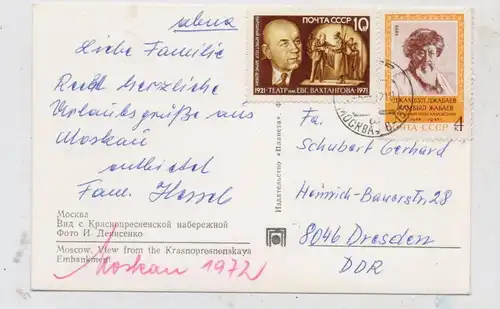 Liebe Familie
Recht herzliche
Urlaubsgrüße aus
Moskau
entbietet
Fam. Hessel
Москва
Вид с Краснопресненской набережной
Фото И. Денисенко
Moscow. View from the Krasnopresnenskaya
Embankment
Moskau 1972
Издательство «Планета».
ПОЧТА СССР 10
1921·ТЕАТР им. ЕВГ. ВАХТАНГОВА·1971
ДЖАМБУЛ ДЖАБАЕВ
ЖАМБЫЛ ЖАБАЕВ
1846 1945
ПОЧТА СССР 4
МОСКВА
Fa.
Schubert Gerhard
Heinrich-Bauerstr. 28
8046 Dresden
DDR